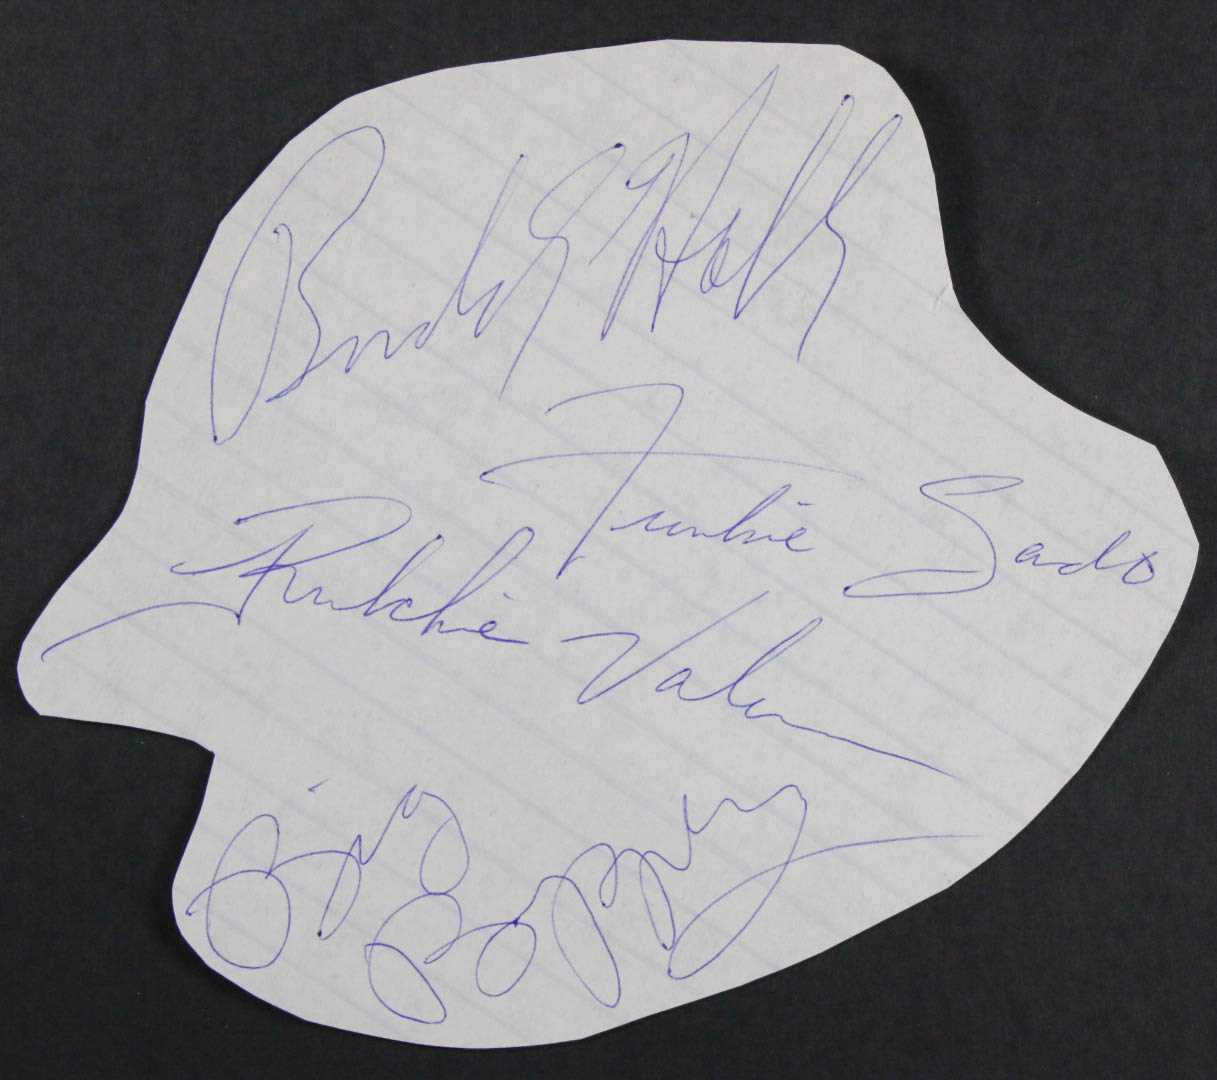 Buddy Holly
Frankie Sardo
Ritchie Valens
Big Bopper